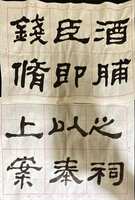 酒脯之祠
臣即以奉
錢脩上案